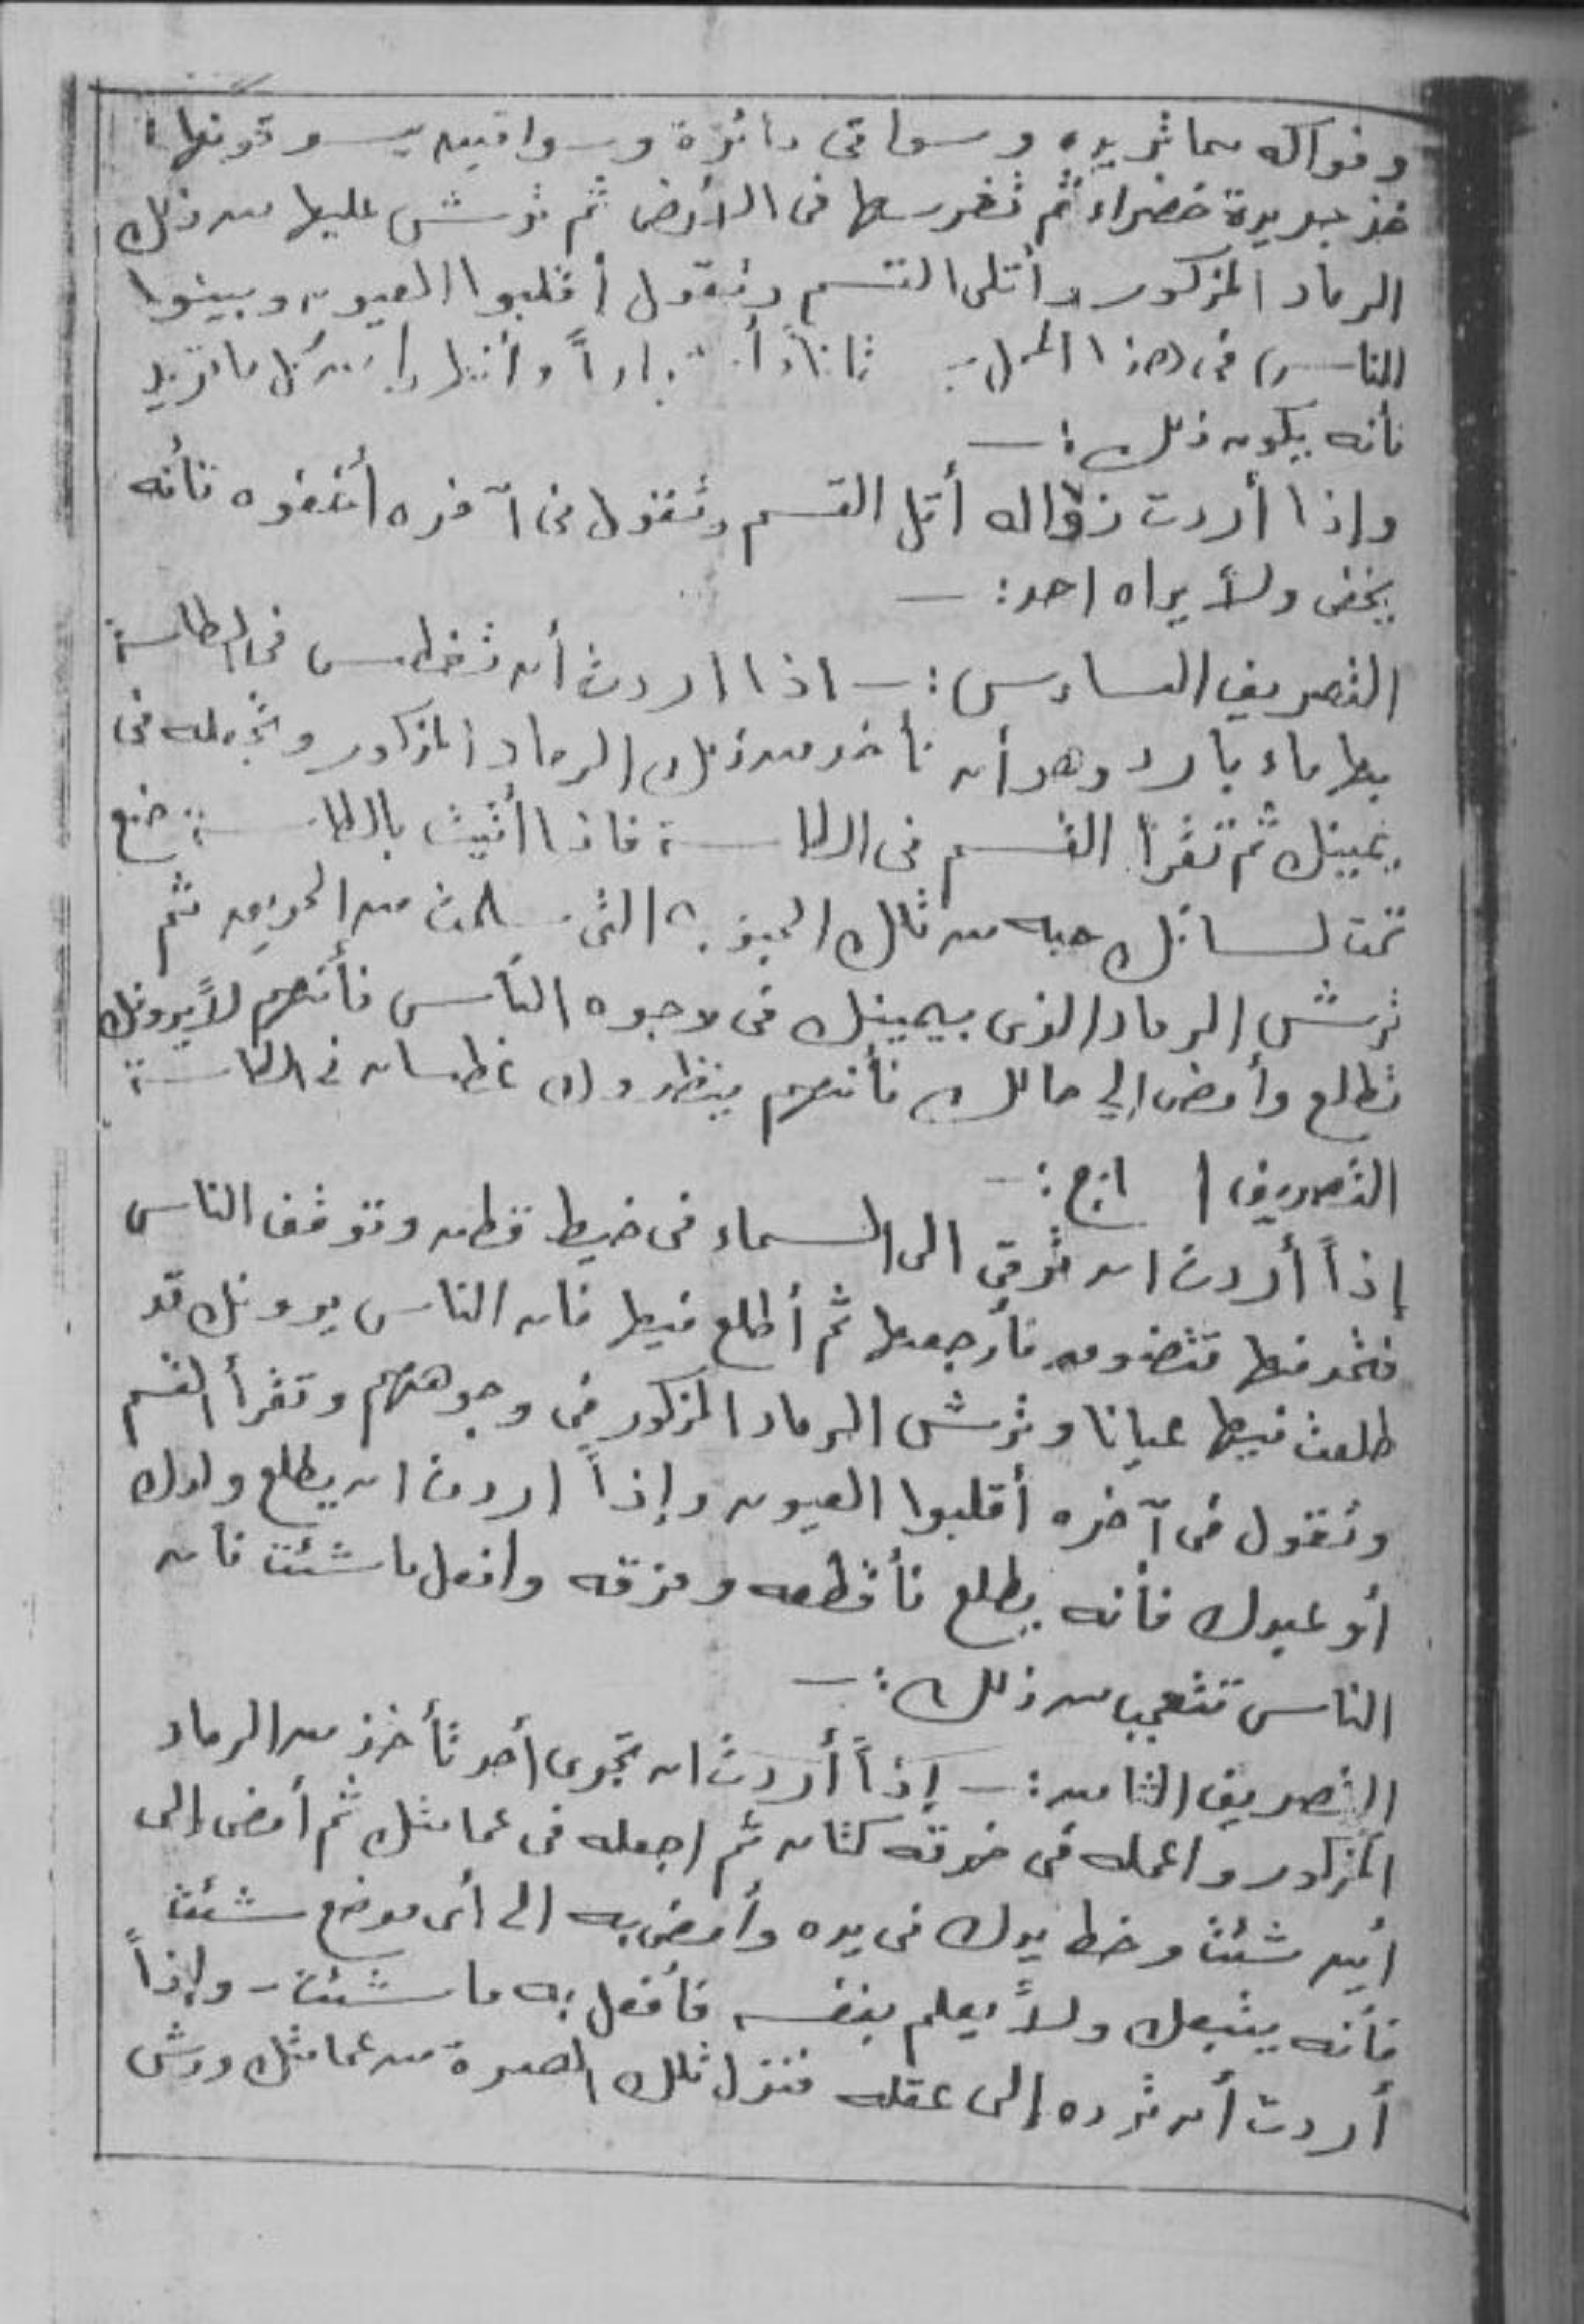 وفواكه مما تريده وسواقى دائرة وسواقيين يسوقونها:
خذ جريدة خضراء ثم تغرسها فى الأرض ثم ترش عليها من ذلك
الرماد المذكور وأتلى القسم وتقول أقلبوا العيون وبينوا
للناس فى هذا المحل وأنهاراً كل ما تريد
فأنه يكون ذلك :ـ
وإذا أردت زواله أتل القسم وتقول فى آخره أخفوه فأنه
يخفى ولا يراه احد :ـ
التصريف السادس :ـ اذا اردت أن تغطس فى الطاسة
بها ماء بارد وهو أن تأخذ من ذلك الرماد المذكور وتجعله فى
يمينك ثم تقرأ القسم فى الطاسة فاذا أتيت بالطاسة ضع
تحت لسانك حبه من تلك الحبوب التى سلمت من الحريق ثم
ترش الرماد الذى بيمينك فى وجوه الناس فأنهم لا يرونك
تطلع وأمض الى حالك فأنهم ينظروك غطسان فى الطاسة
التصريف السابع :ـ
إذاً أردت ان ترقى الى السماء فى خيط قطن وتوقف الناس
فأرجعها ثم أطلع فيها فان الناس يرونك قد
طلعت فيها عيانا وترش الرماد المذكور فى وجوههم وتقرأ القسم
وتقول فى آخره أقلبوا العيون وإذاً اردت ان يطلع ولدك
أو عبدك فأنه يطلع فأقطعه ومزقه وافعل ما شئت فان
الناس تتعجب من ذلك :ـ
التصريف الثامن :ـ إذاً أردت ان تجرى أحد تأخذ من الرماد
المذكور واعمله فى خرقه كتان ثم اجعله فى عمامتك ثم أمض الى
أين شئت وحط يدك فى يده وأمض به الى أى موضع شئت
فأنه يتبعك ولا يعلم بنفسه فأفعل به ما شئت ـ وإذاً
أردت أن ترده إلى عقله فنزل تلك الصرة من عمامتك ورش